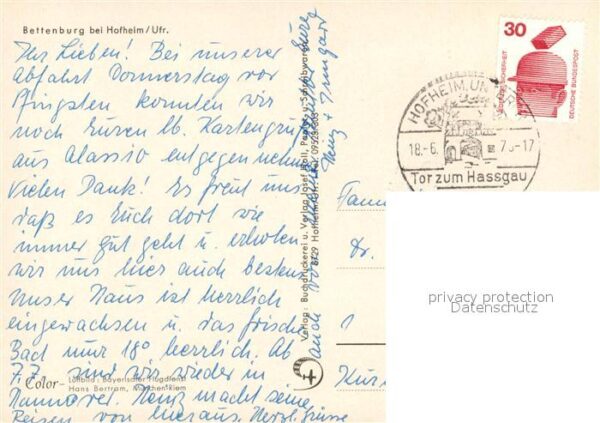 Bettenburg bei Hofheim/Ufr.
Ihr Lieben! Bei unserer
Abfahrt Donnerstag vor
Pfingsten konnten wir
noch Euren lb. Kartengruß
aus Alassio entgegennehmen
Vielen Dank! Es freut uns
daß es Euch dort wie
immer gut geht u. erholen
wir uns hier auch bestens
Unser Haus ist herrlich
eingewachsen u. das frische
Bad nur 18° herrlich. Ab
7.7. sind wir wieder in
Hannover. Heinz macht seine
Reisen von hieraus. Herzl. Grüsse
auch von
Eure
Heinz + Irmgard
Color-
Luftbild: Bayerischer Flugdienst
Hans Bertram, München-Riem
Verlag: Buchdruckerei u. Verlag Josef Holl, Papier- u. Schreibwaren
8729 Hofheim
30
DEUTSCHE BUNDESPOST
HOFHEIM, UN
18.-6.
75-17
Tor zum Hassgau
Fam
Dr.
Kur
privacy protection
Datenschutz